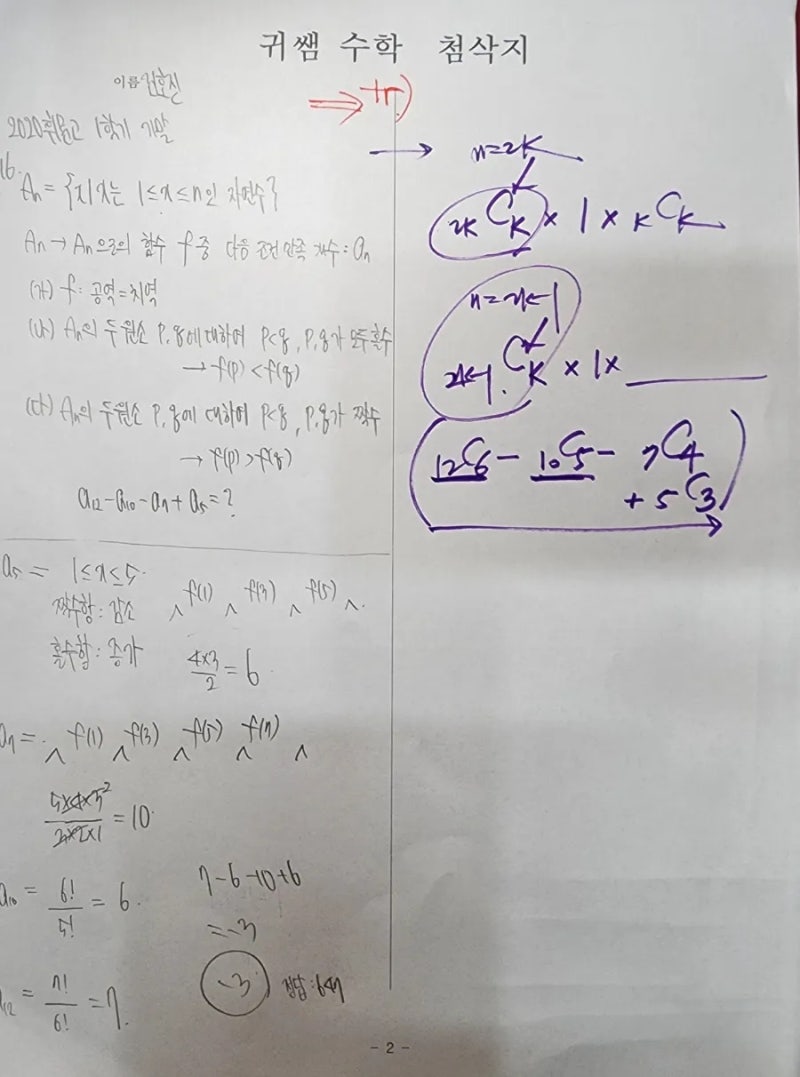 귀쌤 수학 첨삭지
이름
2020휘문고 1학기 기말
16.
An = {x|x는 1≤x≤n인 자연수}
An → An으로의 함수 f 중 다음 조건 만족 개수 : an
(가) f : 공역=치역
(나) An의 두원소 P, q에 대하여 P<q, P, q가 모두홀수
→ f(p) < f(q)
(다) An의 두원소 P, q에 대하여 P<q, P, q가 짝수
→ f(p) > f(q)
a12 - a10 - a7 + a5 = ?
a5 = 1≤x≤5.
짝수항 : 감소 ^ f(1) ^ f(3) ^ f(5) ^.
홀수항 : 증가 4×3/2 = 6
a7 = . ^ f(1) ^ f(3) ^ f(5) ^ f(7) ^
= 10
a10 = 6!/5! = 6.
a12 = 7!/6! = 7.
7-6-10+6
= -3
-3 정답 : 647
⇒ tr)
→ n=2K
2K C K × 1 × K C K
n=2K-1
2K-1 C K × 1 ×
( 12C6 - 10C5 - 7C4
+ 5C3 )
- 2 -